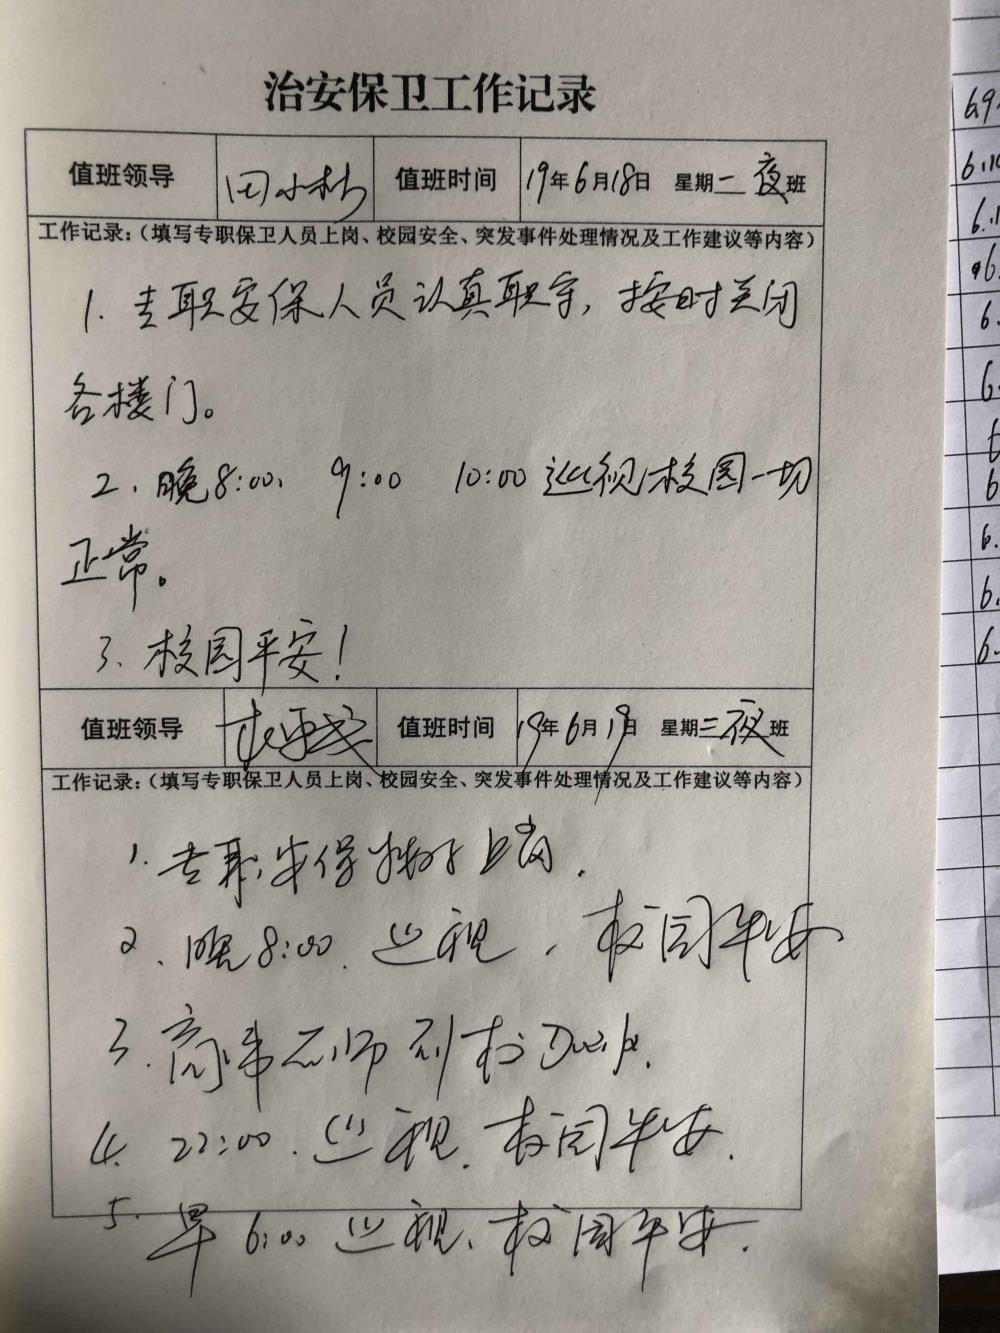 治安保卫工作记录
值班领导 田小 值班时间 19年6月18日 星期二 夜班
工作记录:(填写专职保卫人员上岗、校园安全、突发事件处理情况及工作建议等内容)
1. 专职安保人员认真职守,按时关闭
各楼门。
2、晚8:00、 9:00 10:00 巡视校园一切
正常。
3、校园平安!
值班领导 值班时间 19年6月19日 星期三夜班
工作记录:(填写专职保卫人员上岗、校园安全、突发事件处理情况及工作建议等内容)
1. 专职安保 上岗.
2、晚8:00、巡视,校园平安
3. 老师 到校
4. 22:00.巡视.校园平安.
5. 早6:00巡视、校园平安.
6.9
6.10
6.1
6.
6.
6.
6
6
6.
6.
6.